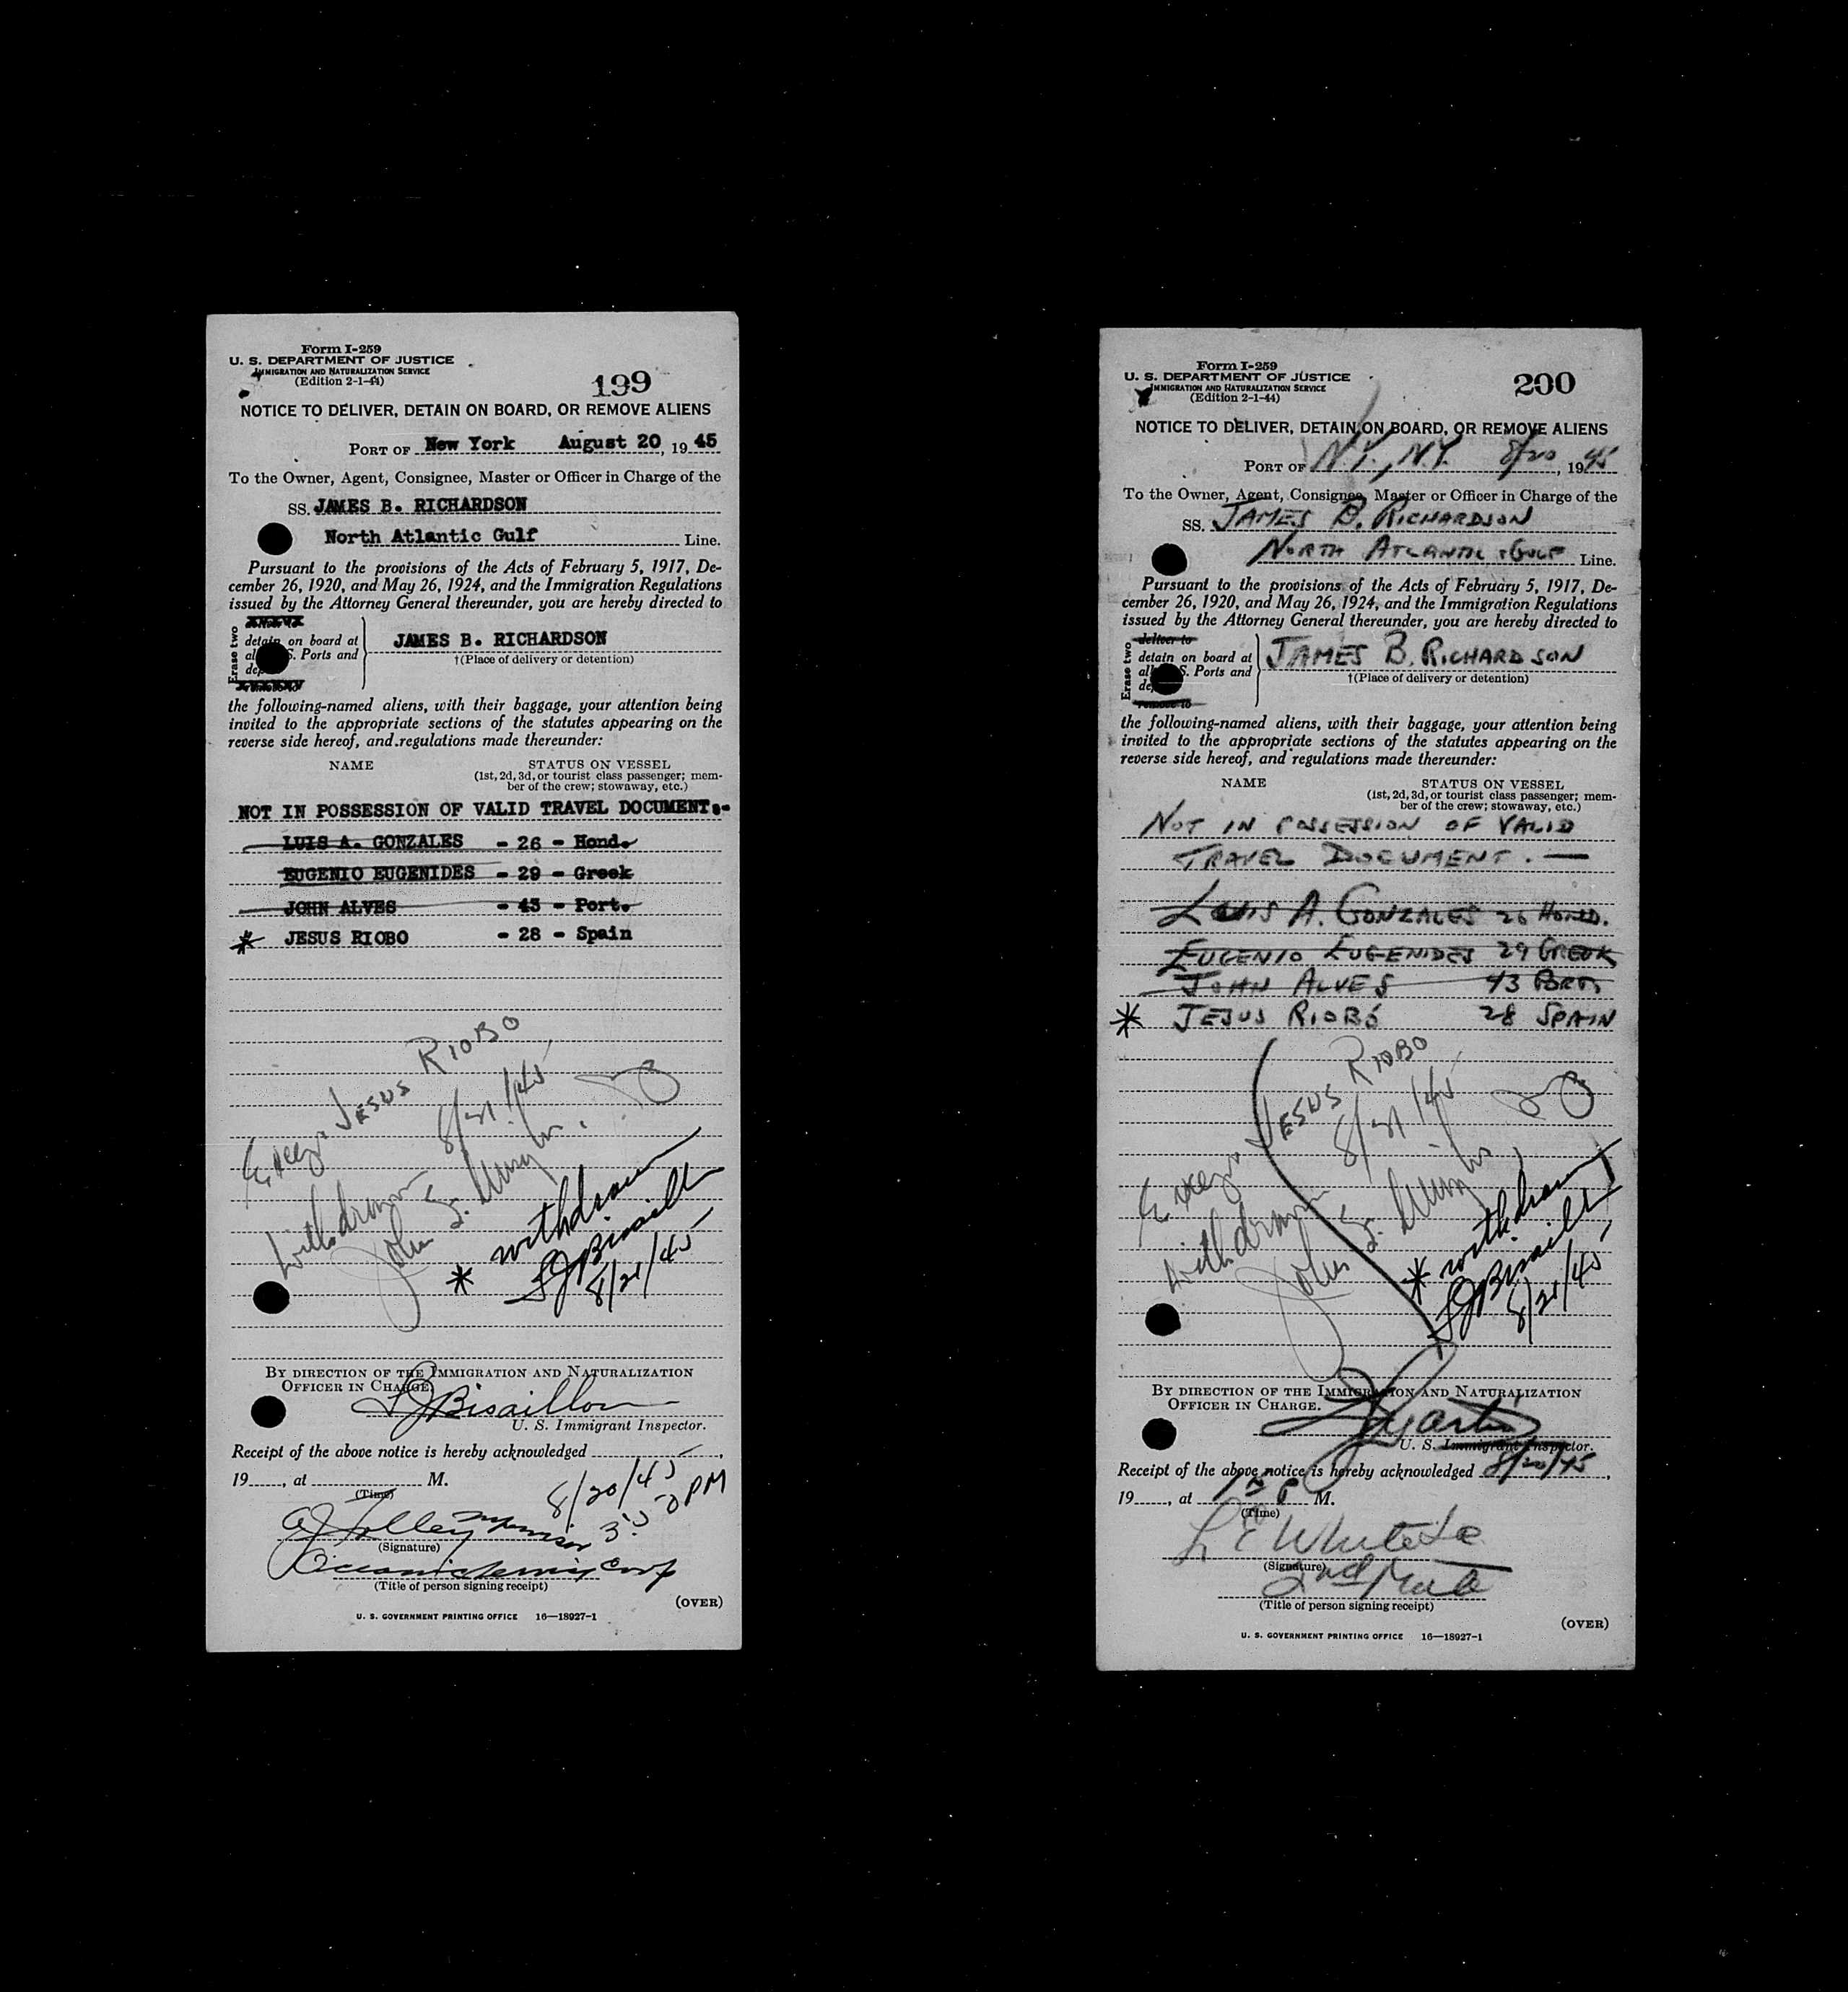 Form I-259
U. S. DEPARTMENT OF JUSTICE
IMMIGRATION AND NATURALIZATION SERVICE
(Edition 2-1-44)
199
NOTICE TO DELIVER, DETAIN ON BOARD, OR REMOVE ALIENS
PORT OF New York August 20, 1945
To the Owner, Agent, Consignee, Master or Officer in Charge of the
SS. JAMES B. RICHARDSON
North Atlantic Gulf Line.
Pursuant to the provisions of the Acts of February 5, 1917, De-
cember 26, 1920, and May 26, 1924, and the Immigration Regulations
issued by the Attorney General thereunder, you are hereby directed to
Erase two
detain on board at
S. Ports and
JAMES B. RICHARDSON
†(Place of delivery or detention)
the following-named aliens, with their baggage, your attention being
invited to the appropriate sections of the statutes appearing on the
reverse side hereof, and regulations made thereunder:
NAME STATUS ON VESSEL
(1st, 2d, 3d, or tourist class passenger; mem-
ber of the crew; stowaway, etc.)
NOT IN POSSESSION OF VALID TRAVEL DOCUMENT:-
LUIS A. GONZALES - 26 - Hond.
EUGENIO EUGENIDES - 29 - Greek
JOHN ALVES - 43 - Port.
* JESUS RIOBO - 28 - Spain
Except JESUS RIOBO
withdrawn 8/21/45
John J.
* withdrawn
LJBisaillon
8/21/45
BY DIRECTION OF THE IMMIGRATION AND NATURALIZATION
OFFICER IN CHARGE.
LJBisaillon
U. S. Immigrant Inspector.
Receipt of the above notice is hereby acknowledged
19, at M.
(Time)
8/20/45
PM
(Signature)
(Title of person signing receipt)
(OVER)
U. S. GOVERNMENT PRINTING OFFICE 16—18927-1
Form I-259
U. S. DEPARTMENT OF JUSTICE
IMMIGRATION AND NATURALIZATION SERVICE
(Edition 2-1-44)
200
NOTICE TO DELIVER, DETAIN ON BOARD, OR REMOVE ALIENS
PORT OF N.Y., N.Y. 8/20, 1945
To the Owner, Agent, Consignee, Master or Officer in Charge of the
SS. JAMES B. RICHARDSON
NORTH ATLANTIC & GULF Line.
Pursuant to the provisions of the Acts of February 5, 1917, De-
cember 26, 1920, and May 26, 1924, and the Immigration Regulations
issued by the Attorney General thereunder, you are hereby directed to
Erase two
deliver to
detain on board at
S. Ports and
remove to
JAMES B. RICHARDSON
†(Place of delivery or detention)
the following-named aliens, with their baggage, your attention being
invited to the appropriate sections of the statutes appearing on the
reverse side hereof, and regulations made thereunder:
NAME STATUS ON VESSEL
(1st, 2d, 3d, or tourist class passenger; mem-
ber of the crew; stowaway, etc.)
NOT IN POSSESSION OF VALID
TRAVEL DOCUMENT. —
LOUIS A. GONZALES 26 HOND.
EUGENIO EUGENIDES 29 GREEK
JOHN ALVES 43 PORT.
* JESUS RIOBÓ 28 SPAIN
Except JESUS RIOBO
withdrawn 8/21/45
John J.
* withdrawn
LJBisaillon
8/21/45
BY DIRECTION OF THE IMMIGRATION AND NATURALIZATION
OFFICER IN CHARGE.
U. S. Immigrant Inspector.
Receipt of the above notice is hereby acknowledged 8/20/45,
19, at P M.
(Time)
(Signature)
2nd Mate
(Title of person signing receipt)
(OVER)
U. S. GOVERNMENT PRINTING OFFICE 16—18927-1